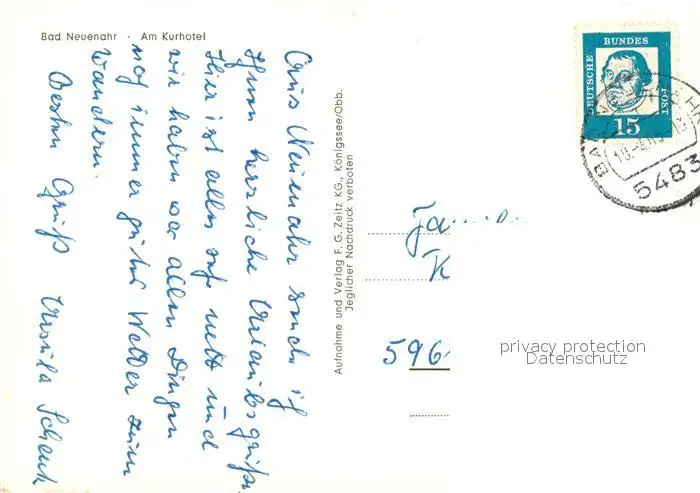 Bad Neuenahr · Am Kurhotel
Aus Neuenahr sende ich
Ihnen herzliche Urlaubsgrüße.
Hier ist alles sehr nett und
wir haben vor allen Dingen
noch immer gutes Wetter zum
Wandern.
Besten Gruß Ursula Schenk
Aufnahme und Verlag F. G. Zeitz KG., Königssee/Obb.
Jeglicher Nachdruck verboten
DEUTSCHE
BUNDES
POST
15
5483
596
privacy protection
Datenschutz